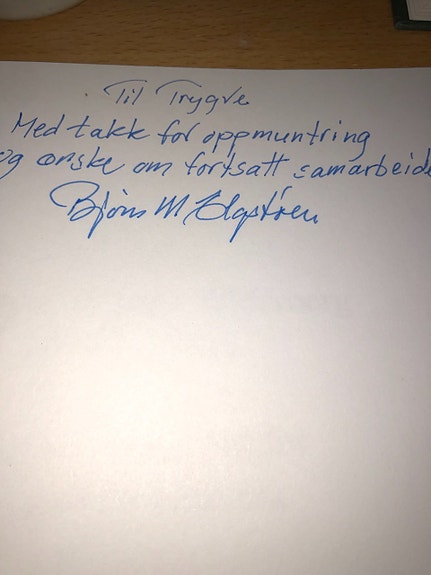 Til Trygve
Med takk for oppmuntring
og ønske om fortsatt samarbeide
Bjørn M